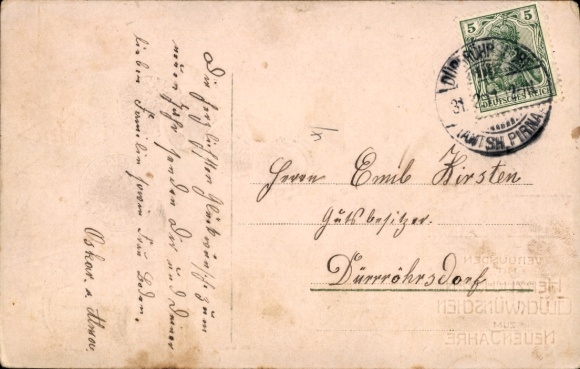 Die herzlichsten Glückwünsche zum
neuen Jahr senden Dir und Deiner
lieben Familie sowie Frau
Oskar u.
5 5
DEUTSCHES REICH
31.12.
(AMTSH. PIRNA)
Herrn Emil Kirsten
Gutsbesitzer.
Dürrröhrsdorf
VERBUNDEN
MIT
HERZLICHEN
GLÜCKWÜNSCHEN
ZUM
NEUEN JAHRE